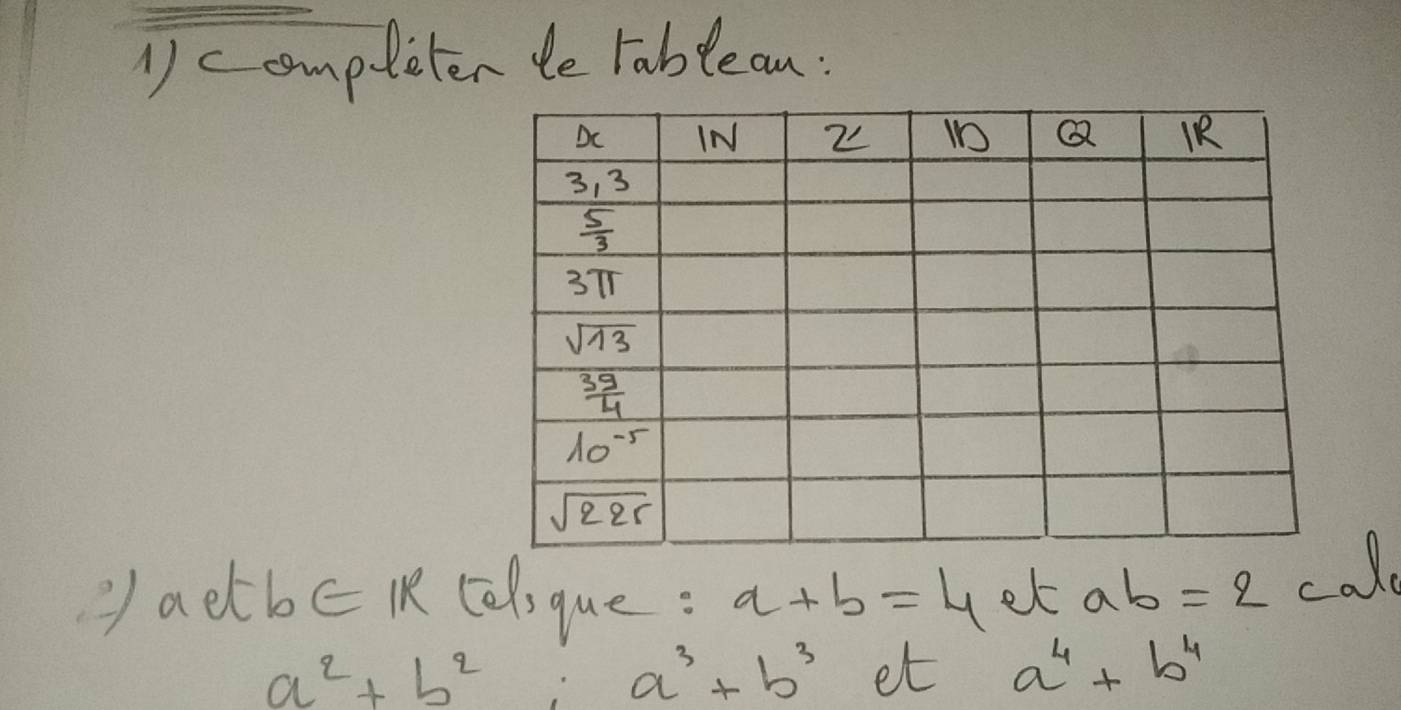 1) Compléter le tableau :
x IN Z ID Q IR
3,3
5/3
3π
√13
39/4
10⁻⁵
√225
2) a et b ∈ IR tels que : a + b = 4 et ab = 2 calc
a² + b² ; a³ + b³ et a⁴ + b⁴